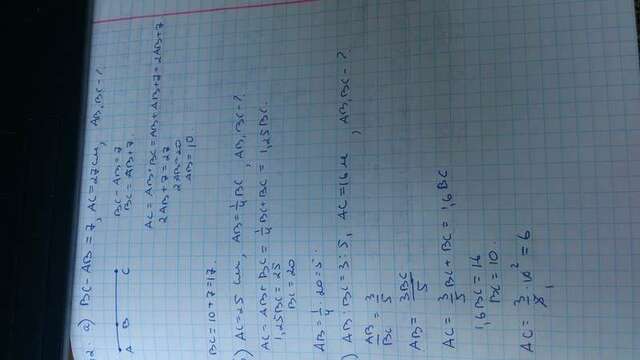 2. a) BC - AB = 7, AC = 27 см, AB, BC - ?
A B C
BC - AB = 7
BC = AB + 7
AC = AB + BC = AB + AB + 7 = 2AB + 7
2AB + 7 = 27
2AB = 20
AB = 10
BC = 10 + 7 = 17.
) AC = 25 см, AB = 1/4 BC, AB, BC - ?
AC = AB + BC = 1/4 BC + BC = 1,25 BC.
1,25 BC = 25
BC = 20
AB = 1/4 · 20 = 5
) AB : BC = 3 : 5, AC = 16 м, AB, BC - ?
AB/BC = 3/5
AB = 3BC/5
AC = 3/5 BC + BC = 1,6 BC
1,6 BC = 16
BC = 10.
AC = 3/5 · 10 = 6